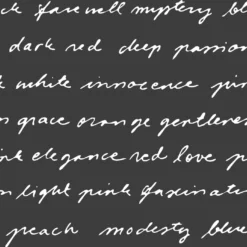 farewell mystery
dark red deep passion
white innocence
grace orange gentleness
elegance red love
light pink fascinati
peach modesty blue